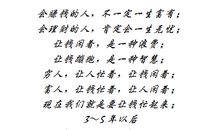 会赚钱的人，不一定一生富有；
会理财的人，肯定会一生无忧；
让钱闲着，是一种浪费；
让钱蹦跑，是一种智慧；
穷人，让人忙着，让钱闲着；
富人，让钱忙着，让人闲着；
现在我们就是要让钱忙起来；
3～5年以后